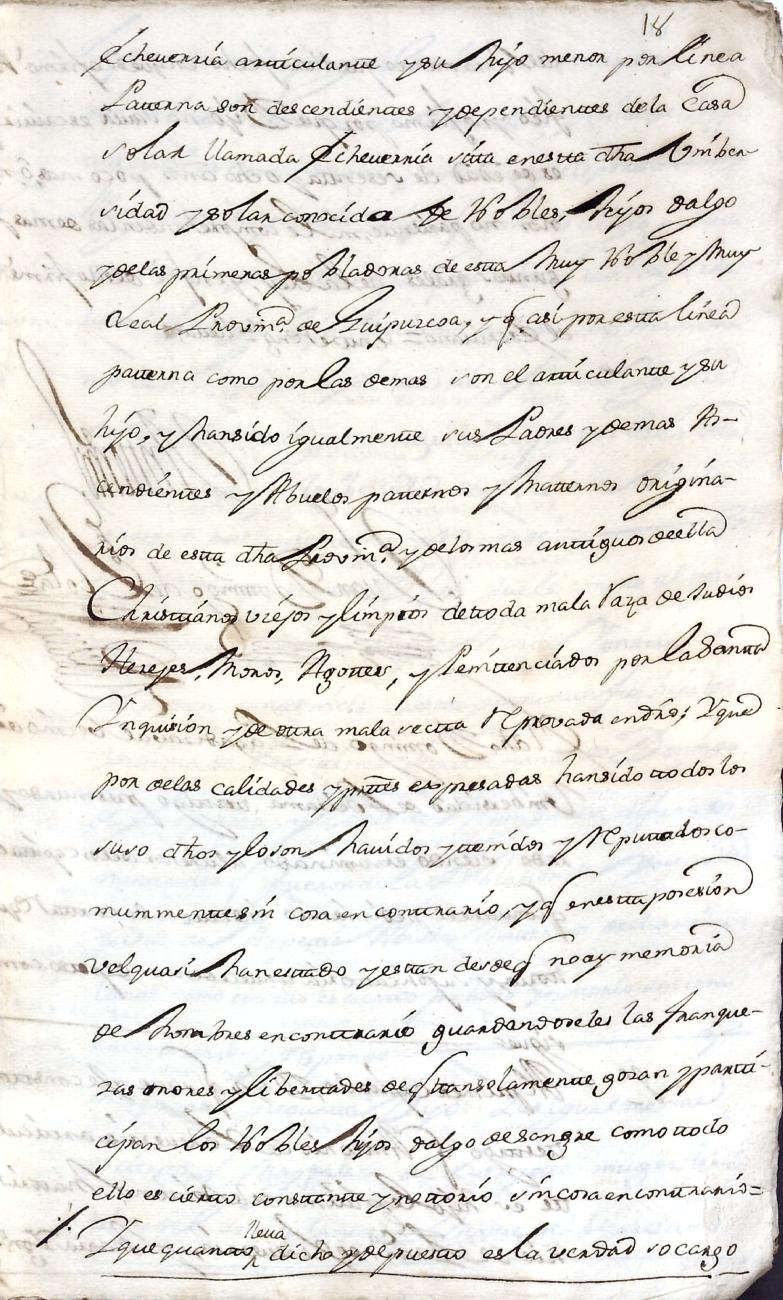 18
Echeverria artticulantte y su hijo menor por linea
Patterna son descendienttes y dependienttes de la Casa
solar llamada Echeverria sitta en estta dha Vniber-
sidad y solar conocida de Nobles, hijos dalgo
y de las primeras pobladoras de estta Muy Noble y Muy
Leal Provinª de Guipuzcoa, y q̃ asi por estta linea
patterna como por las demas son el artticulantte y su
hijo, y han sido igualmentte sus Padres y demas As-
cendienttes y Abuelos patternos y Matternos origina-
rios de estta dha Provinª y de los mas anttiguos de ella
Christtianos viejos y limpios de ttoda mala Raza de Judios
Herejes, Moros, Agottes, y Penittenciados por la Santta
Ynquisizion y de ottra mala sectta Reprovada en dro; Y que
por de las calidades y parttes expresadas han sido ttodos los
suso dhos y lo son havidos y ttenidos y Reputtados co-
munmentte sin cosa en conttrario, y q̃ en estta posesion
vel quasi han esttado y esttan desde q̃ no ay memoria
de hombres en conttrario guardandoseles las franque-
zas onores y liberttades de q̃ ttan solamentte gozan y partti-
cipan los Nobles hijos dalgo de sangre como ttodo
ello es ciertto consttantte y nottorio sin cosa en conttrario=
Y que quantto lleva dicho y depuestto es la verdad so cargo